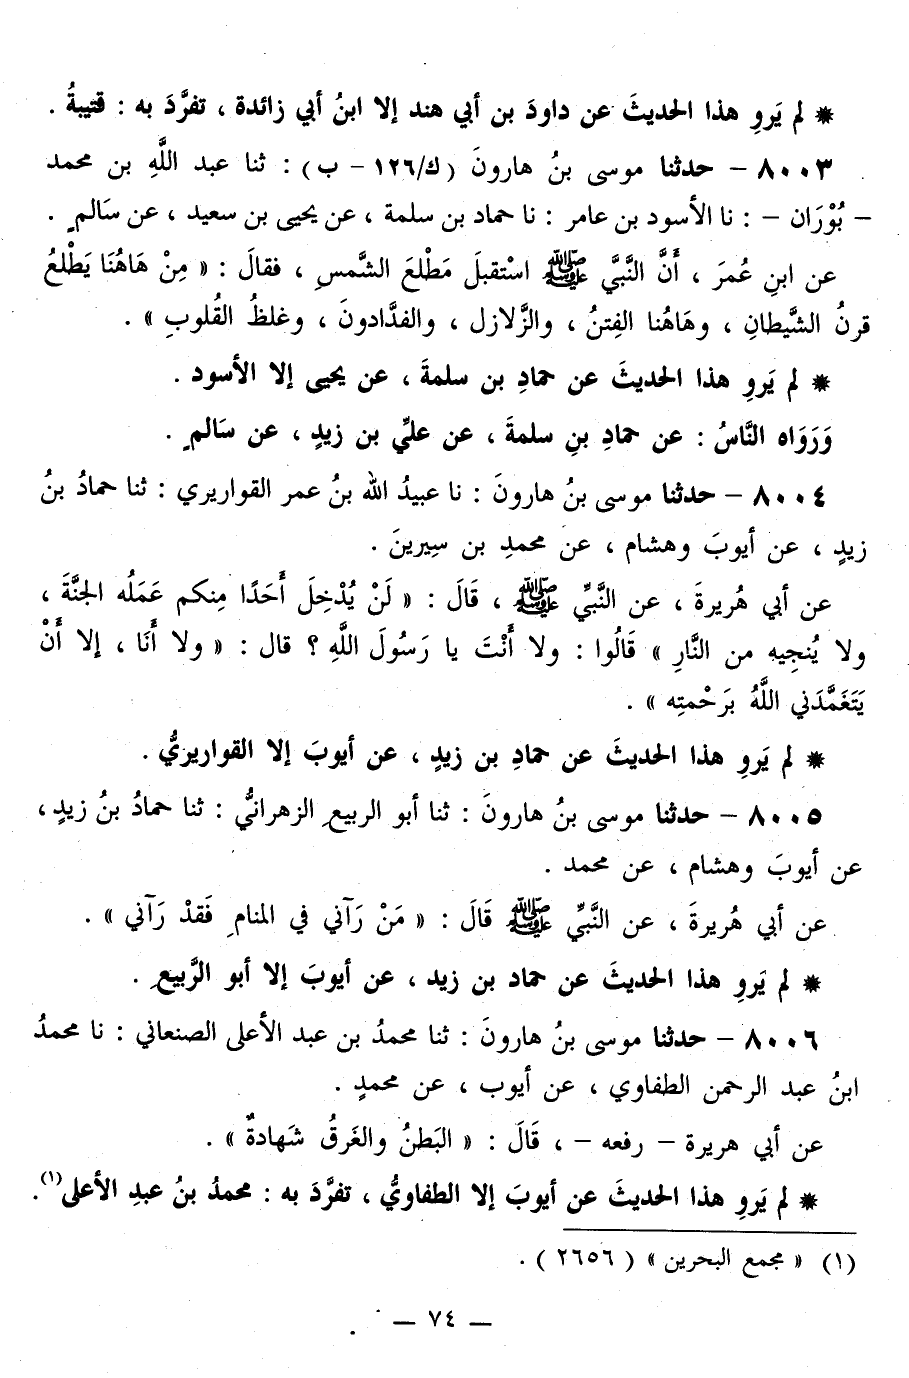 * لم يَروِ هذا الحديثَ عن داودَ بن أبي هند إلا ابنُ أبي زائدة ، تفرَّدَ به : قتيبةُ .
٨٠٠٣ – حدثنا موسى بنُ هارونَ (ك/١٢٦ – ب) : ثنا عبد اللَّهِ بن محمد
– بُوْرَان – : نا الأسود بن عامر : نا حماد بن سلمة ، عن يحيى بن سعيد ، عن سَالمٍ .
عن ابنِ عُمرَ ، أَنَّ النَّبيَّ ﷺ اسْتقبلَ مَطْلعَ الشَّمسِ ، فقالَ : « مِنْ هَاهُنَا يَطْلعُ
قرنُ الشَّيطانِ ، وهَاهُنا الفِتنُ ، والزَّلازل ، والفدَّادونَ ، وغلظُ القُلوبِ » .
* لم يَروِ هذا الحديثَ عن حمادِ بن سلمةَ ، عن يحيى إلا الأسود .
وَرَوَاه النَّاسُ : عن حمادِ بنِ سلمةَ ، عن عليِّ بن زيدٍ ، عن سَالمٍ .
٨٠٠٤ – حدثنا موسى بنُ هارونَ : نا عبيدُ الله بنُ عمر القواريري : ثنا حمادُ بنُ
زيدٍ ، عن أيوبَ وهشام ، عن محمدِ بن سِيرينَ .
عن أبي هُريرةَ ، عن النَّبيِّ ﷺ ، قَالَ : « لَنْ يُدْخِلَ أَحَدًا مِنكم عَمَلُه الجنَّةَ ،
ولا يُنجِيهِ من النَّارِ » قَالُوا : ولا أَنْتَ يا رَسُولَ اللَّهِ ؟ قال : « ولا أَنَا ، إلا أَنْ
يَتَغَمَّدَني اللَّهُ بَرَحْمتِه » .
* لم يَروِ هذا الحديثَ عن حمادِ بن زيدٍ ، عن أيوبَ إلا القواريريُّ .
٨٠٠٥ – حدثنا موسى بنُ هارونَ : ثنا أبو الربيعِ الزهرانيُّ : ثنا حمادُ بنُ زيدٍ ،
عن أيوبَ وهشام ، عن محمد .
عن أبي هُريرةَ ، عن النَّبيِّ ﷺ قَالَ : « مَنْ رَآني في المنامِ فَقدْ رَآني » .
* لم يَروِ هذا الحديثَ عن حماد بن زيد ، عن أيوبَ إلا أبو الرَّبيعِ .
٨٠٠٦ – حدثنا موسى بنُ هارونَ : ثنا محمدُ بن عبد الأعلى الصنعاني : نا محمدُ
ابنُ عبد الرحمن الطفاوي ، عن أيوب ، عن محمدٍ .
عن أبي هريرة – رفعه – ، قَالَ : « البَطنُ والغَرقُ شَهادةٌ » .
* لم يَروِ هذا الحديثَ عن أيوبَ إلا الطفاويُّ ، تفرَّدَ به : محمدُ بنُ عبدِ الأعلى(١).
(١) « مجمع البحرين » ( ٢٦٥٦ ) .
– ٧٤ –